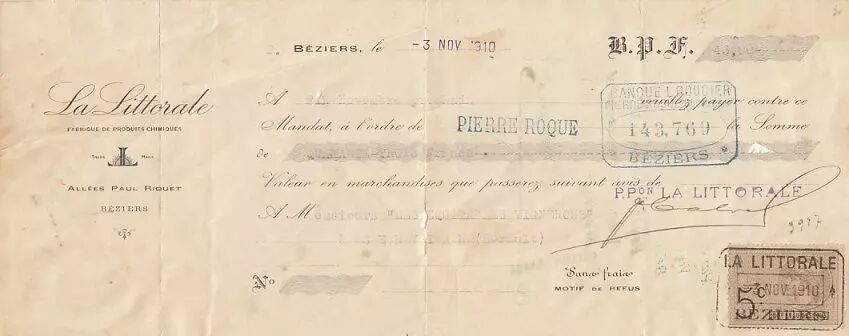 BÉZIERS, le -3 NOV 1910 B.P.F.
La Littorale
FABRIQUE DE PRODUITS CHIMIQUES
TRADE MARK
ALLÉES PAUL RIQUET
BÉZIERS
A Novembre veuillez payer contre ce
Mandat, à l'ordre de PIERRE ROQUE la Somme
de
BANQUE L. BOUDIER
143,769
BÉZIERS
Valeur en marchandises que passerez suivant avis de
P.PON LA LITTORALE
A M
3977
Sans frais
MOTIF DE REFUS
No
LA LITTORALE
5c
3 NOV 1910
BÉZIERS